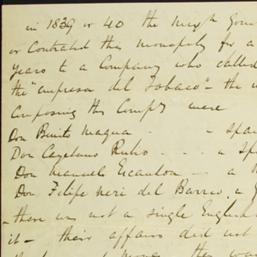 in 1839 or 40 the Mex Gov
or Contrated the monopoly for a
Years to a Company who called
the "empresa del Tobaco" - the
Composing this Compy were
Don Benito Maqua - - Spa
Don Cayetano Rubio - - Spa
Don Manuel Escandon - - a
Don Felipe Neri del Barrio a G
- there was not a single English
it - their affairs did not